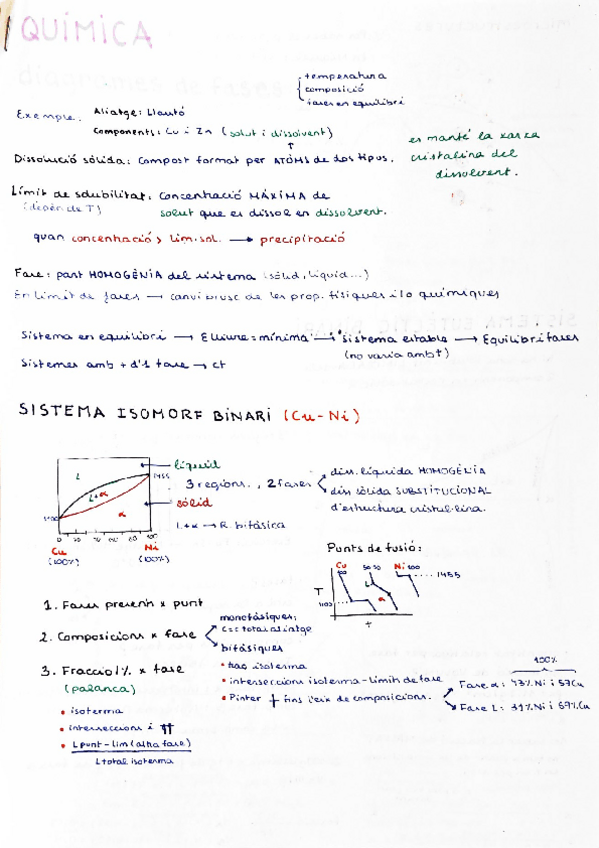 QUÍMICA
temperatura
composició
fases en equilibri
Exemple. Aliatge: Llautó
Components: Cu i Zn (solut i dissolvent)
Dissolució sòlida: compost format per ÀTOMS de dos tipus.
es manté la xarxa
cristal·lina del
dissolvent.
Límit de solubilitat: Concentració MÀXIMA de
(depèn de T) solut que es dissol en dissolvent.
quan concentració > lim. sol. → precipitació
Fase: part HOMOGÈNIA del sistema (sòlid, líquid...)
En límit de fases → canvi brusc de les prop. físiques i/o químiques
Sistema en equilibri → E lliure = mínima → Sistema estable → Equilibri fases
(no varia amb t)
Sistemes amb + d'1 fase → ct
SISTEMA ISOMORF BINARI (Cu-Ni)
líquid
L
1455
3 regions., 2 fases
diss. líquida HOMOGÈNIA
L+α
sòlid
dis sòlida SUBSTITUCIONAL
α
d'estructura cristal·lina.
1100
L+α → R. bifàsica
Cu Ni
(100%) (100%)
Punts de fusió:
Cu 50 50 Ni 100
100
1455
L
T
α
1100
t
1. Fases presents x punt
2. Composicions x fase
monofàsiques:
C = C total aliatge
bifàsiques
3. Fracció/% x fase
(palanca)
• traç isoterma
• interseccions isoterma - límit de fase
• Pinter + fins l'eix de composicions.
100%
Fase α: 43% Ni i 57 Cu
Fase L: 31% Ni i 69% Cu
• isoterma
• interseccions i
• L punt - lim (altra fase)
L total isoterma